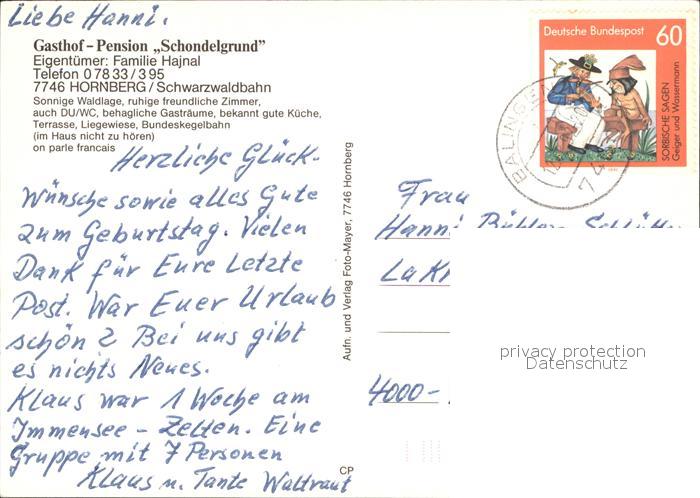 Liebe Hanni.
Gasthof – Pension „Schondelgrund"
Eigentümer: Familie Hajnal
Telefon 0 78 33 / 3 95
7746 HORNBERG / Schwarzwaldbahn
Sonnige Waldlage, ruhige freundliche Zimmer,
auch DU/WC, behagliche Gasträume, bekannt gute Küche,
Terrasse, Liegewiese, Bundeskegelbahn
(im Haus nicht zu hören)
on parle francais
Herzliche Glück-
Wünsche sowie alles Gute
zum Geburtstag. Vielen
Dank für Eure Letzte
Post. War Euer Urlaub
schön? Bei uns gibt
es nichts Neues.
Klaus war 1 Woche am
Immensee - Zelten. Eine
Gruppe mit 7 Personen
Klaus u. Tante Waltraut
Aufn. und Verlag Foto-Mayer, 7746 Hornberg
CP
Deutsche Bundespost 60
SORBISCHE SAGEN
Geiger und Wassermann
BALINGEN
Frau
Hanni
4000-
privacy protection
Datenschutz